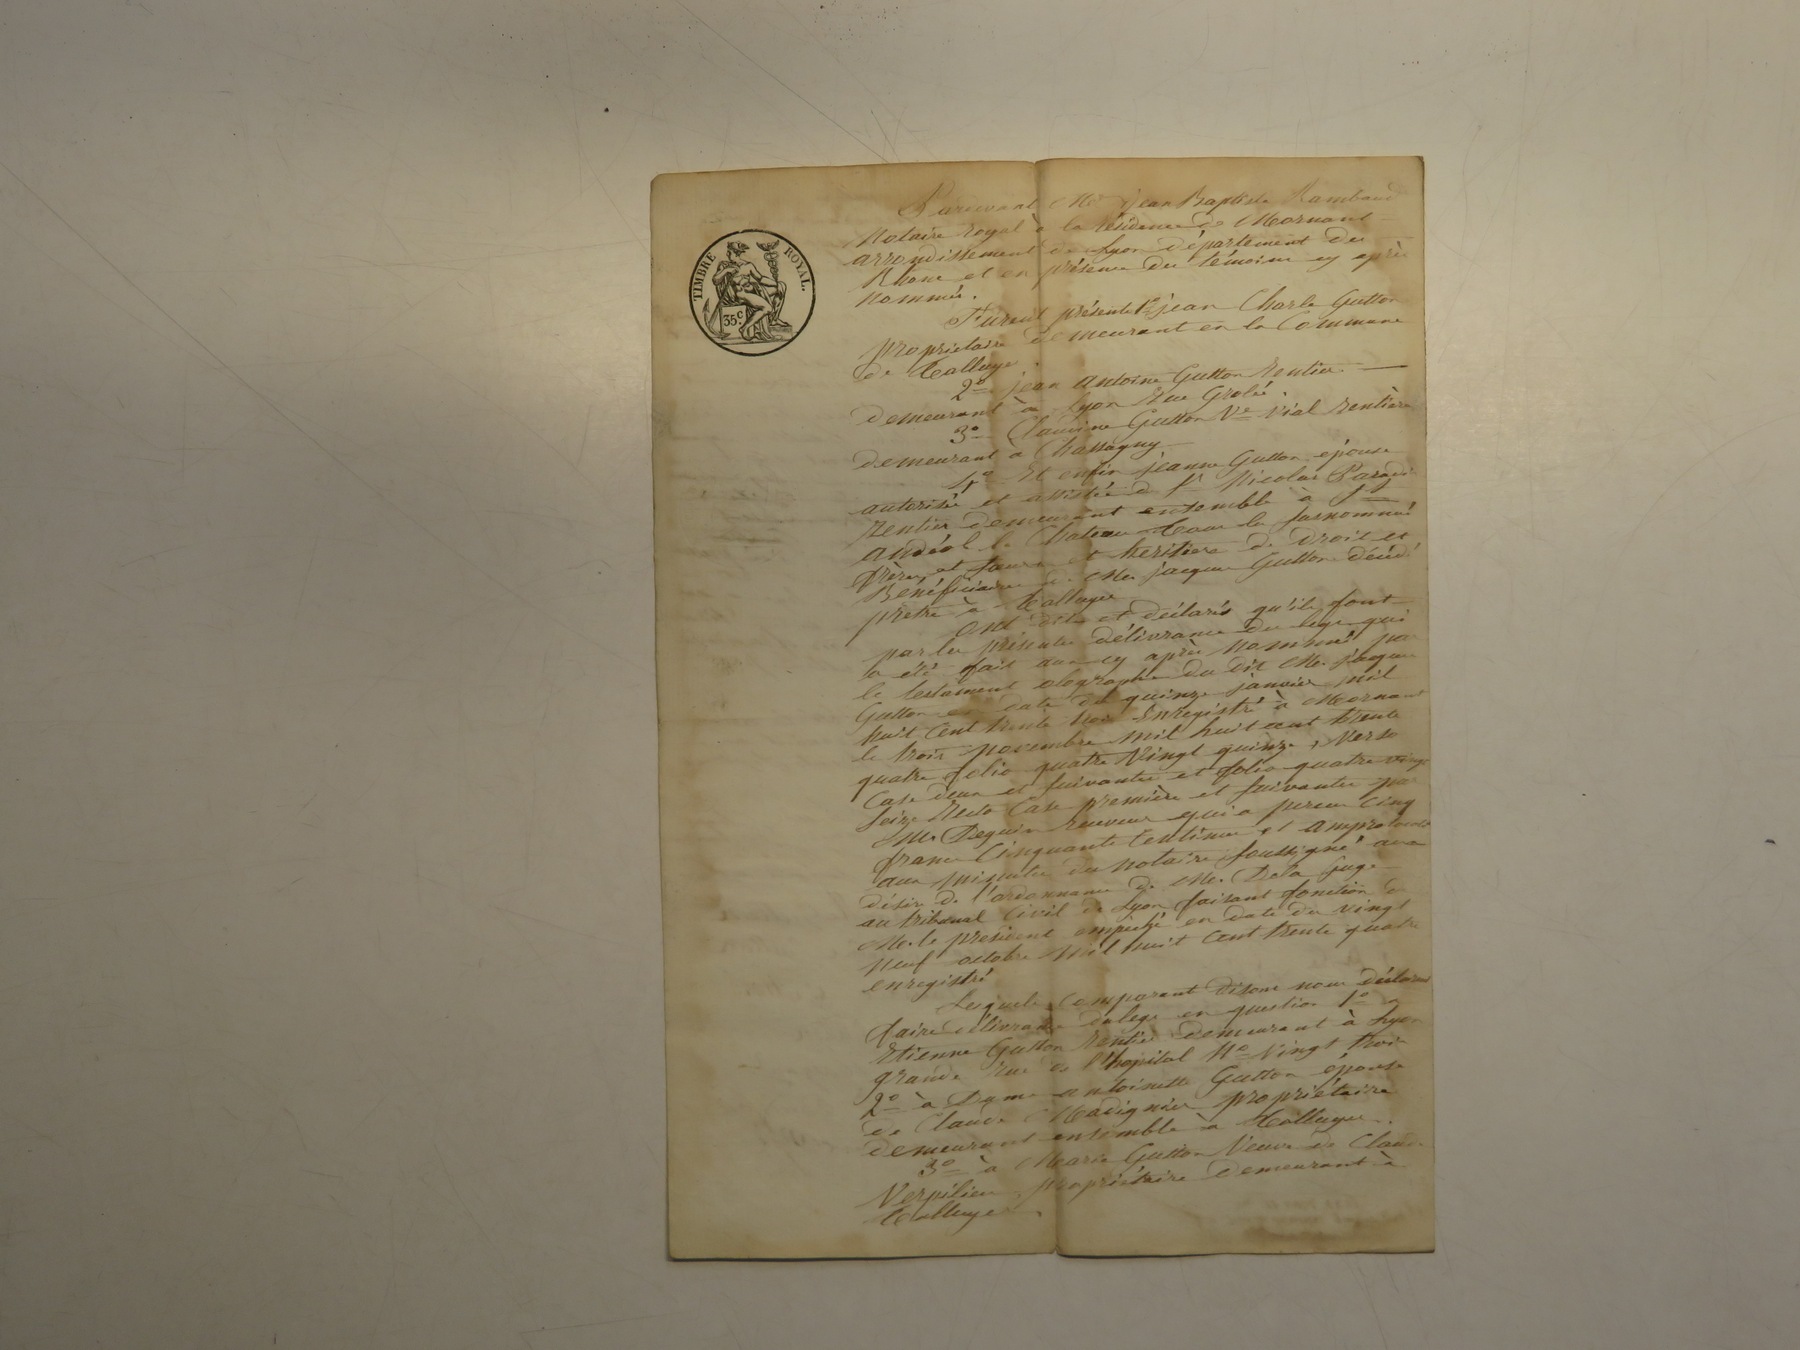 TIMBRE ROYAL.
35c.
Pardevant Me jean Baptiste Rambaud
Notaire royal à la résidence de Mornant
arrondissement de Lyon département du
Rhone et en présence des témoins cy après
nommés.
Furent présents 1o jean Charle Gutton
propriétaire demeurant en la Commune
de Talluyé.
2o jean antoine Gutton Rentier
demeurant à Lyon Rue Grolé.
3o Claudine Gutton Ve Vial Rentière
demeurant à Chassagny
4o Et enfin jeanne Gutton épouse
autorisée et assistée de Sr Nicolas
Rentier demeurant ensemble à St
andéol le Chateau tous les susnommés
frères et soeurs et héritiers de droit et
Bénéficiaire de Me jacques Gutton décédé
prêtre à Talluyé
ont dits et déclarés qu'ils font
par les présentes délivrance du legs qui
a été fait aux cy après nommés par
le testament olographe du dit Me. jacques
Gutton en date du quinze janvier mil
huit cent trente trois Enregistré à Mornant
le trois novembre mil huit cent trente
quatre folio quatre vingt quinze, Verso
Case deux et suivantes et folio quatre vingt
seize Recto Case première et suivantes par
Mr. Deguin receveur qui a perçu Cinq
francs Cinquante Centimes et
aux minutes du notaire soussigné aux
désirs de l'ordonnance de Mr. De la
au tribunal Civil de Lyon faisant fonction de
Mr. le président empêché en date du vingt
neuf octobre Mil huit Cent trente quatre
enregistré
Lesquels Comparant disons nous déclarons
faire délivrance du legs en question 1o a
Etienne Gutton Rentier demeurant à Lyon
grande rue de l'hopital No Vingt trois
2o à Dame antoinette Gutton épouse
de Claude Madignier propriétaire
demeurant ensemble à Talluyer.
3o à Marie Gutton Veuve de Claude
Verpilieu propriétaire demeurant à
Talluyé